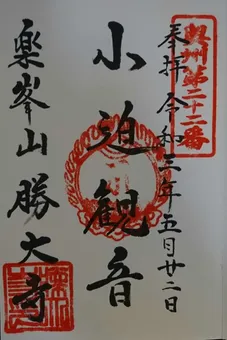 奥州第二十二番
奉拝 令和三年五月廿二日
小迫観音
楽峯山 勝大寺